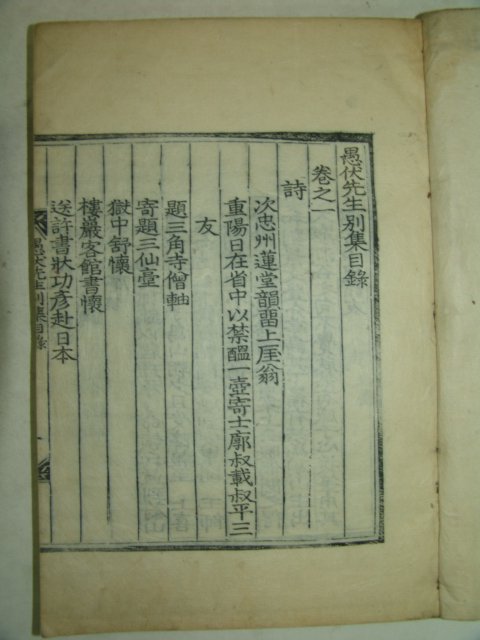 愚伏先生別集目錄
卷之一
詩
次忠州蓮堂韻留上厓翁
重陽日在省中以禁醞一壺寄士廓叔載叔平三
友
題三角寺僧軸
寄題三仙臺
獄中舒懷
樓巖客館書懷
送許書狀功彥赴日本
愚伏先生別集目錄